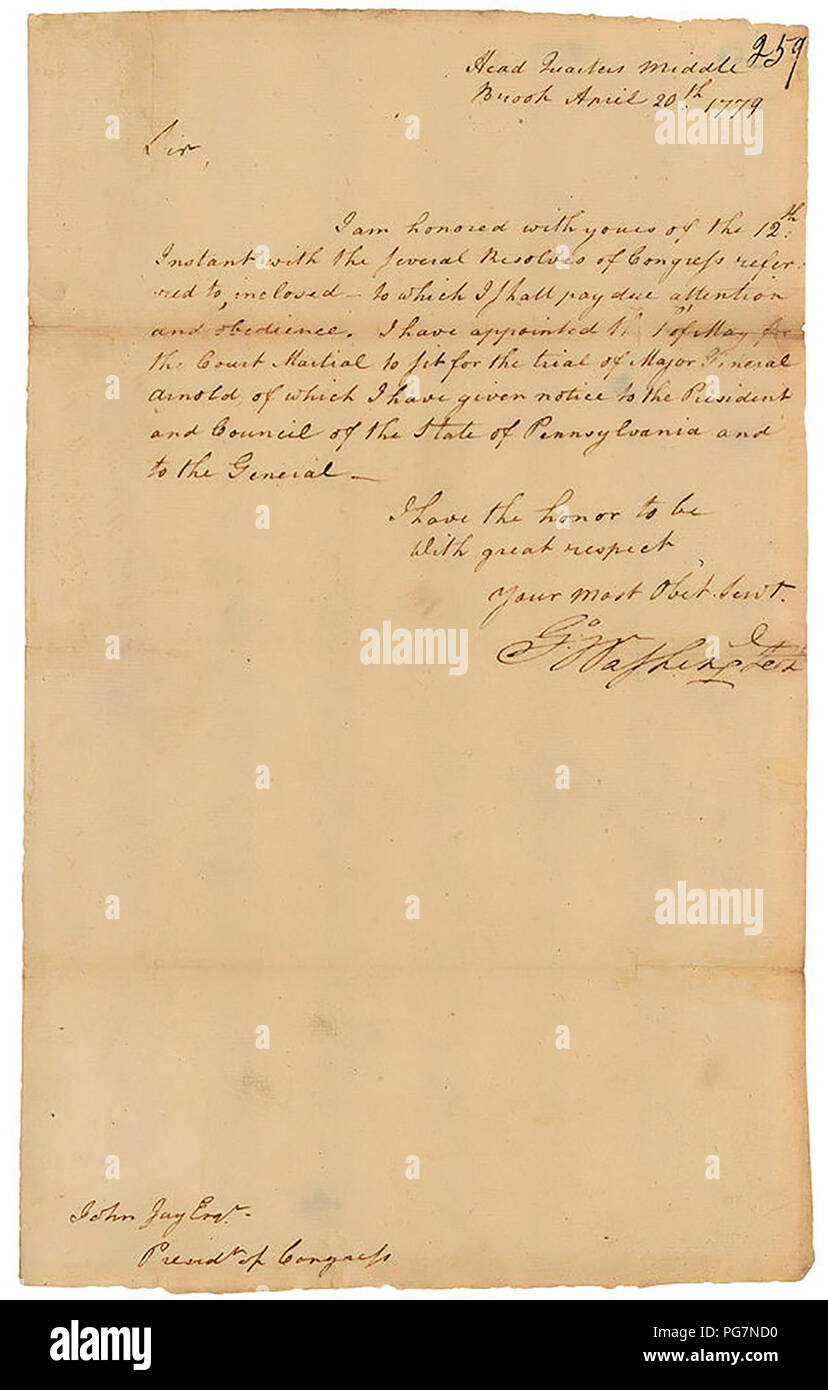 259
Head Quarters Middle
Brook April 20th 1779
Sir,
I am honored with yours of the 12th
Instant with the several Resolves of Congress refer-
red to, inclosed — to which I shall pay due attention
and obedience. I have appointed th 1st of May for
the Court Martial to sit for the trial of Major General
Arnold, of which I have given notice to the President
and Council of the State of Pennsylvania and
to the General —
I have the honor to be
With great respect
Your most Obet. Servt.
Go: Washington
John Jay Esqr.
Presidt. of Congress
alamy
alamy
a
alamy
www.alamy.com
Image ID: PG7ND0